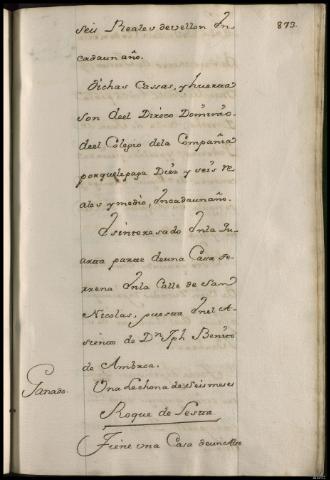 873.
seis Reales de vellon En
cada un año.
Dichas Cassas, y huerta
son deel Direco Dominio
deel Colegio de la Compañia
porque le paga Diez y seis Re
ales y medio, En cada un año.
Es interesado En la qu
arta parte de una Casa te
rrena En la Calle de San
Nicolas, puesta En el A
siento de Dn Jph Benito
de Ambrea.
Ganado.
Una Lechona de seis meses
Roque de Sesma
Tiene una Casa de un alto